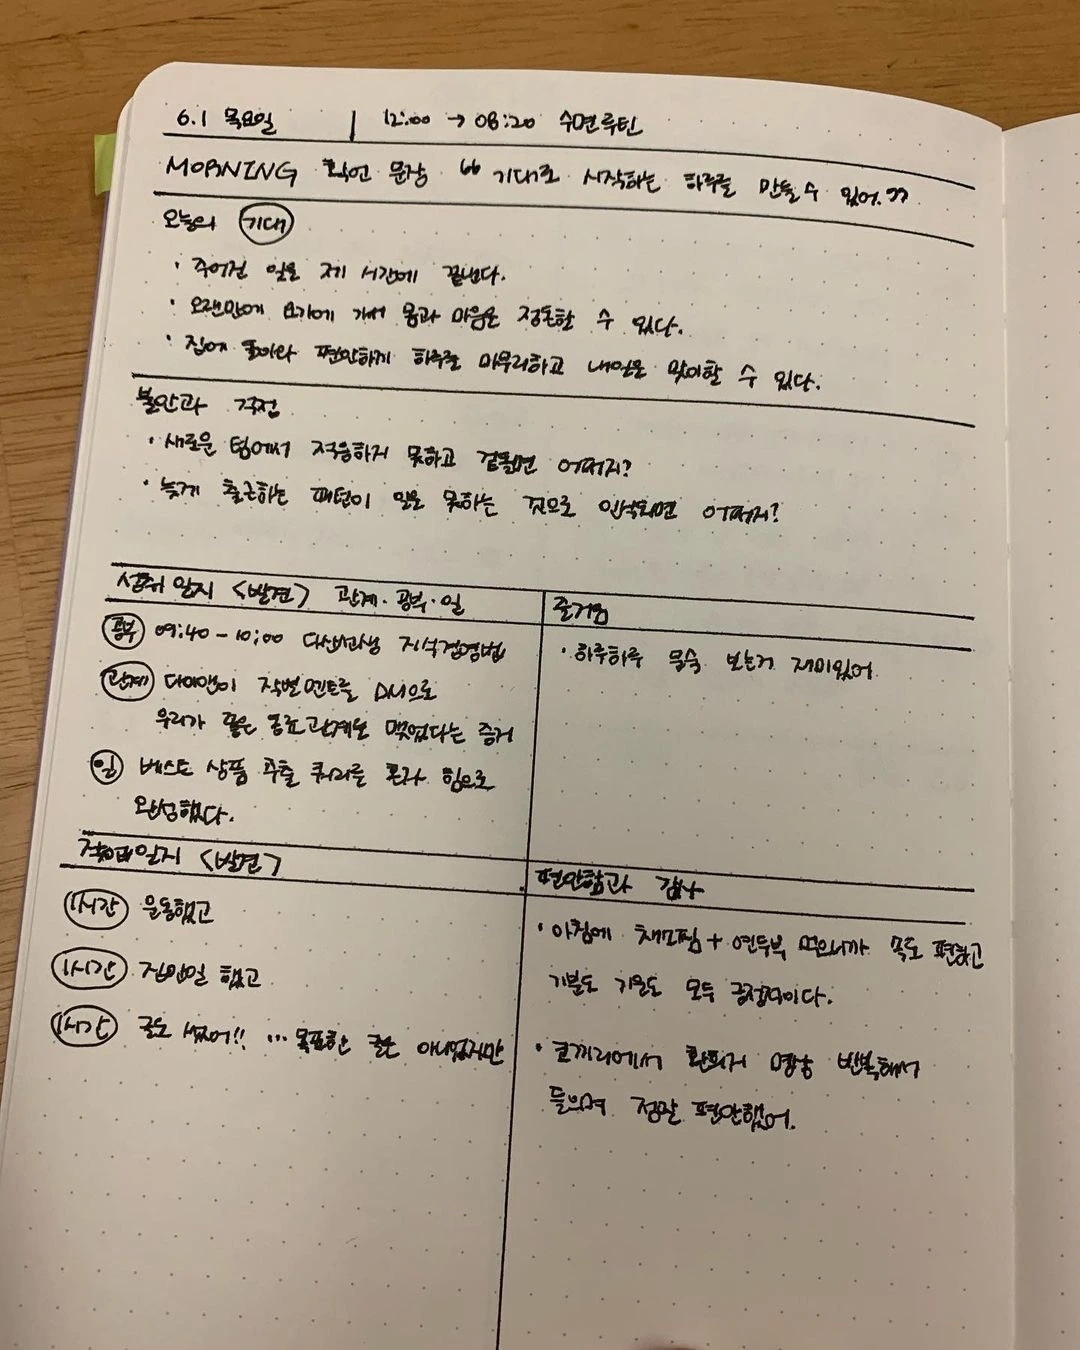 6.1 목요일 | 12:00 → 08:20 수면루틴
MORNING 확언 문장 “ 기대로 시작하는 하루를 만들 수 있어.”
오늘의 기대
· 주어진 일을 제 시간에 끝낸다.
· 오랜만에 요가에 가서 몸과 마음을 정돈할 수 있다.
· 집에 돌아와 편안하게 하루를 마무리하고 내일을 맞이할 수 있다.
불안과 걱정
· 새로운 팀에서 적응하지 못하고 겉돌면 어쩌지?
· 늦게 출근하는 패턴이 일을 못하는 것으로 인식되면 어쩌지?
성취 일지 <발견> 관계·공부·일
공부 09:40 - 10:00 다산선생 지식경영법
관계 다이앤이 작별멘트를 DM으로
우리가 좋은 동료관계를 맺었다는 증거
일 베스트 상품 추출 쿼리를 혼자 힘으로
완성했다.
즐거움
· 하루하루 보는거 재미있어
일지 <발견>
1시간 운동했고
1시간 집안일 했고
1시간 글도 썼어!! ... 목표한 글은 아니었지만
편안함과 감사
· 아침에 채소찜 + 연두부 먹으니까 속도 편하고
기분도 기운도 모두 긍정적이다.
· 코끼리에서 명상 반복해서
들으며 정말 편안했어.